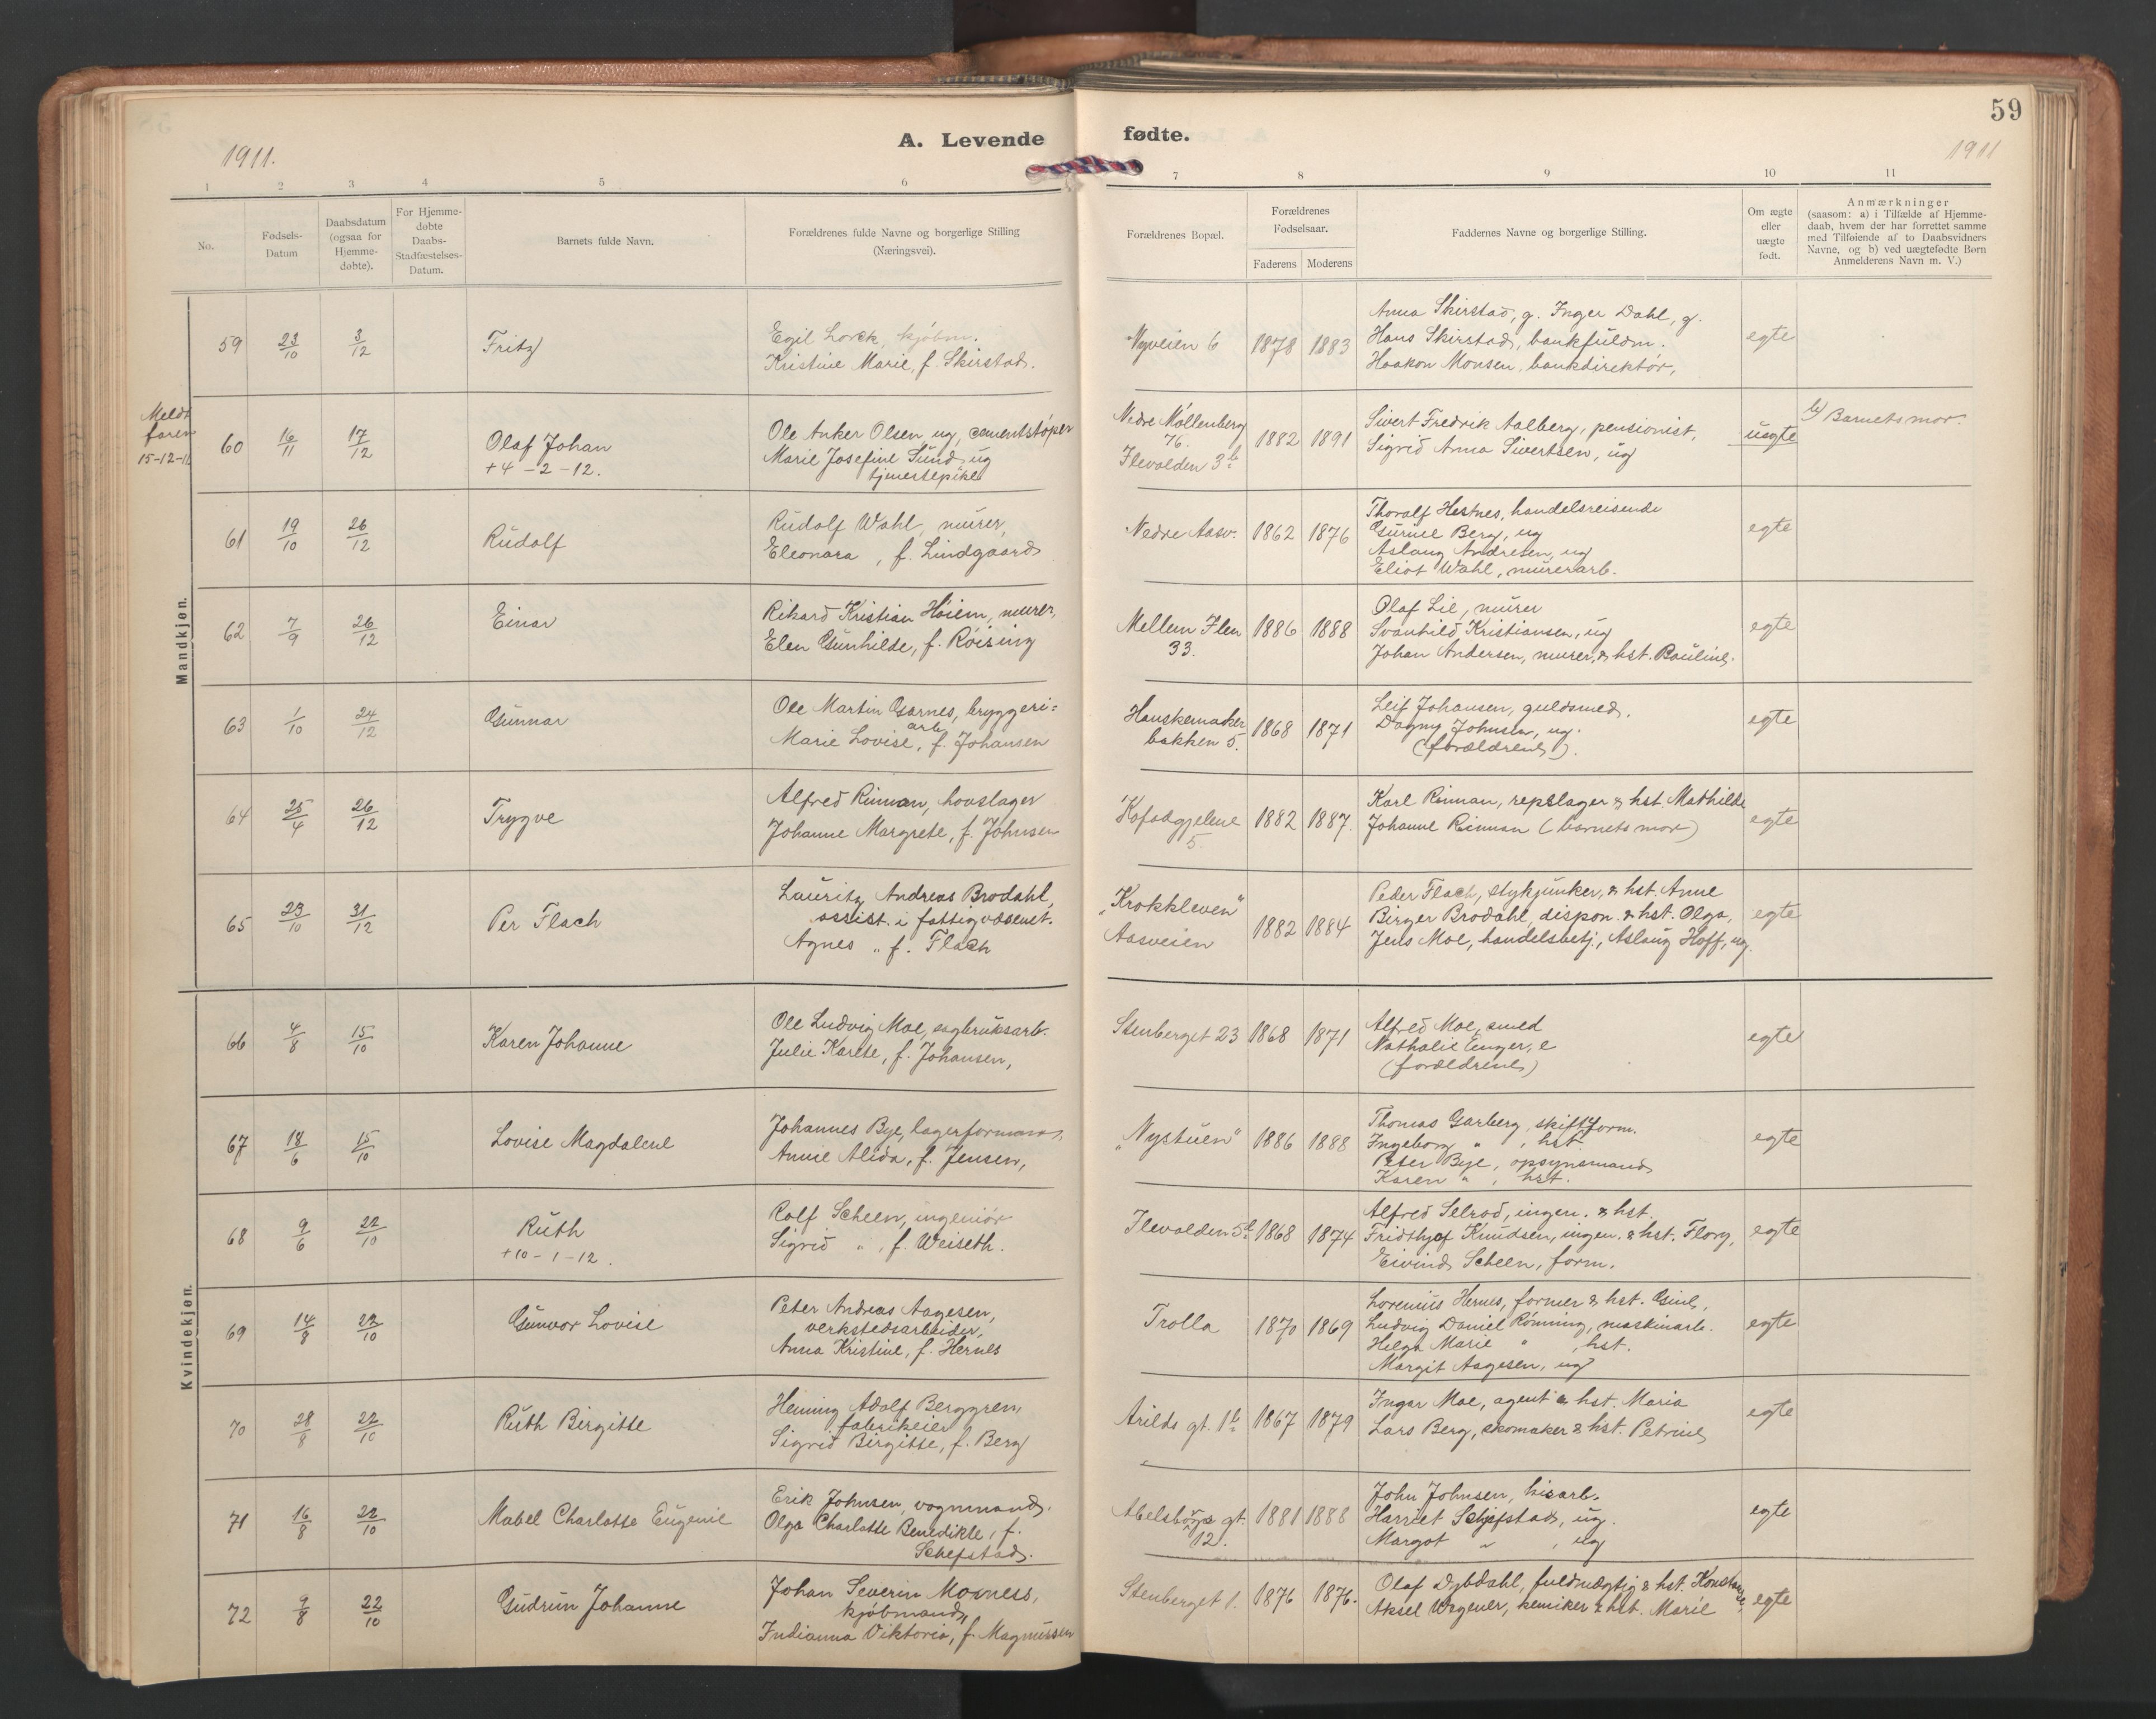 59
1911.
A. Levende fødte.
1911
1 2 3 4 5 6 7 8 9 10 11
No.
Fødsels-
Datum
Daabsdatum
(ogsaa for
Hjemme-
døbte).
For Hjemme-
døbte
Daabs-
Stadfæstelses-
Datum.
Barnets fulde Navn.
Forældrenes fulde Navne og borgerlige Stilling
(Næringsvei).
Forældrenes Bopæl.
Forældrenes
Fødselsaar.
Faderens Moderens
Faddernes Navne og borgerlige Stilling.
Om ægte
eller
uægte
født.
Anmærkninger
(saasom: a) i Tilfælde af Hjemme-
daab, hvem der har forrettet samme
med Tilføiende af to Daabsvidners
Navne, og b) ved uægtefødte Børn
Anmelderens Navn m. V.)
Mandkjøn.
59 23/10 3/12 Fritz
Egil Lorck, kjøbm.
Kristine Marie, f. Skirstad.
Nyveien 6 1878 1883
Anna Skirstad, g. Inger Dahl, g.
Hans Skirstad, bankfuldm.
Haakon Monsen, bankdirektør,
egte
Meldt
faren
15-12-11
60 16/11 17/12 Olaf Johan
+ 4-2-12.
Ole Anker Olsen ug, cementstøper
Marie Josefine Sund, ug
tjenestepike
Nedre Møllenberg
76.
Ilevolden 3b
1882 1891
Sivert Fredrik Aalberg, pensionist,
Sigrid Anna Sivertsen, ug
uegte
b) Barnets mor.
61 19/10 26/12 Rudolf
Rudolf Wahl, murer,
Eleonara, f. Lindgaard
Nedre Aasv. 1862 1876
Thoralf Hestnes, handelsreisende
Gurine Berg, ug
Aslaug Andresen, ug
Eliot Wahl, murerarb.
egte
62 7/9 26/12 Einar
Rikard Kristian Høiem, murer,
Elen Gunhilde, f. Røising
Mellem Ilen
33.
1886 1888
Olaf Lie, murer
Svanhild Kristiansen, ug
Johan Andersen, murer, & hst. Pauline.
egte
63 1/10 24/12 Gunnar
Ole Martin Garnes, bryggeri=
arb
Marie Lovise, f. Johansen
Hanskemaker
bakken 5.
1868 1871
Leif Johansen, guldsmed,
Dagny Johnsen, ug.
(forældrene).
egte
64 25/4 26/12 Trygve
Alfred Rinnan, hovslager
Johanne Margrete, f. Johnsen
Kofodgjelene
5.
1882 1887.
Karl Rinnan, repslager & hst. Mathilde
Johanne Rinnan (barnets mor)
egte
65 23/10 31/12 Per Flach
Lauritz Andreas Brodahl,
assist. i fattigvæsenet.
Agnes „ f. Flach
„Krokkleven"
Aasveien
1882 1884
Peder Flach, stykjunker, & hst. Anne
Birger Brodahl, dispon. & hst. Olga,
Jens Moe, handelsbetj., Aslaug Hoff, ug.
egte
Kvindekjøn.
66 4/8 15/10 Karen Johanne
Ole Ludvig Moe, sagbruksarb.
Julie Karete, f. Johansen,
Stenberget 23 1868 1871
Alfred Moe, smed
Nathalie Enger, e
(forældrene)
egte
67 18/6 15/10 Lovise Magdalene
Johannes Bye, lagerformand,
Anne Alida, f. Jensen,
„Nystuen" 1886 1888
Thomas Garberg, skiftform.
Ingeborg „ , hst.
Peter Bye, opsynsmand
Karen „ , hst.
egte
68 9/6 22/10 Ruth
+ 10-1-12.
Rolf Scheen, ingeniør
Sigrid „ , f. Weiseth.
Ilevolden 5b 1868 1874
Alfred Selrod, ingen. & hst.
Fridthjof Knudsen, ingen. & hst. Flory,
Eivind Scheen, form.
egte
69 14/8 22/10 Gunvor Lovise
Peter Andreas Aagesen,
verkstedsarbeider,
Anna Kristine, f. Hernes
Trolla 1870 1869
Lorenius Hernes, former & hst. Gine,
Ludvig Daniel Rønning, maskinarb.
Helga Marie „ , hst.
Margit Aagesen, ug
egte
70 28/8 22/10 Ruth Birgitte
Heming Adolf Berggren,
fabrikeier
Sigrid Birgitte, f. Berg
Arilds gt. 1b 1867 1879
Ingar Moe, agent & hst. Maria
Lars Berg, skomaker & hst. Petrine
egte
71 16/8 22/10 Mabel Charlotte Eugenie
Erik Johnsen, vognmand.
Olga Charlotte Benedikte, f.
Schefstad.
Abelsborgs gt.
12.
1881 1888
John Johnsen, bisarb.
Harriet Schefstad, ug.
Margot „ , ug
egte
72 9/8 22/10 Gudrun Johanne
Johan Severin Moxness,
kjøbmand,
Indianna Viktoria, f. Magnussen
Stenberget 1. 1876 1876.
Olaf Dybdahl, fuldmægtig & hst. Konstanse,
Aksel Wegener, kemiker & hst. Marie
egte